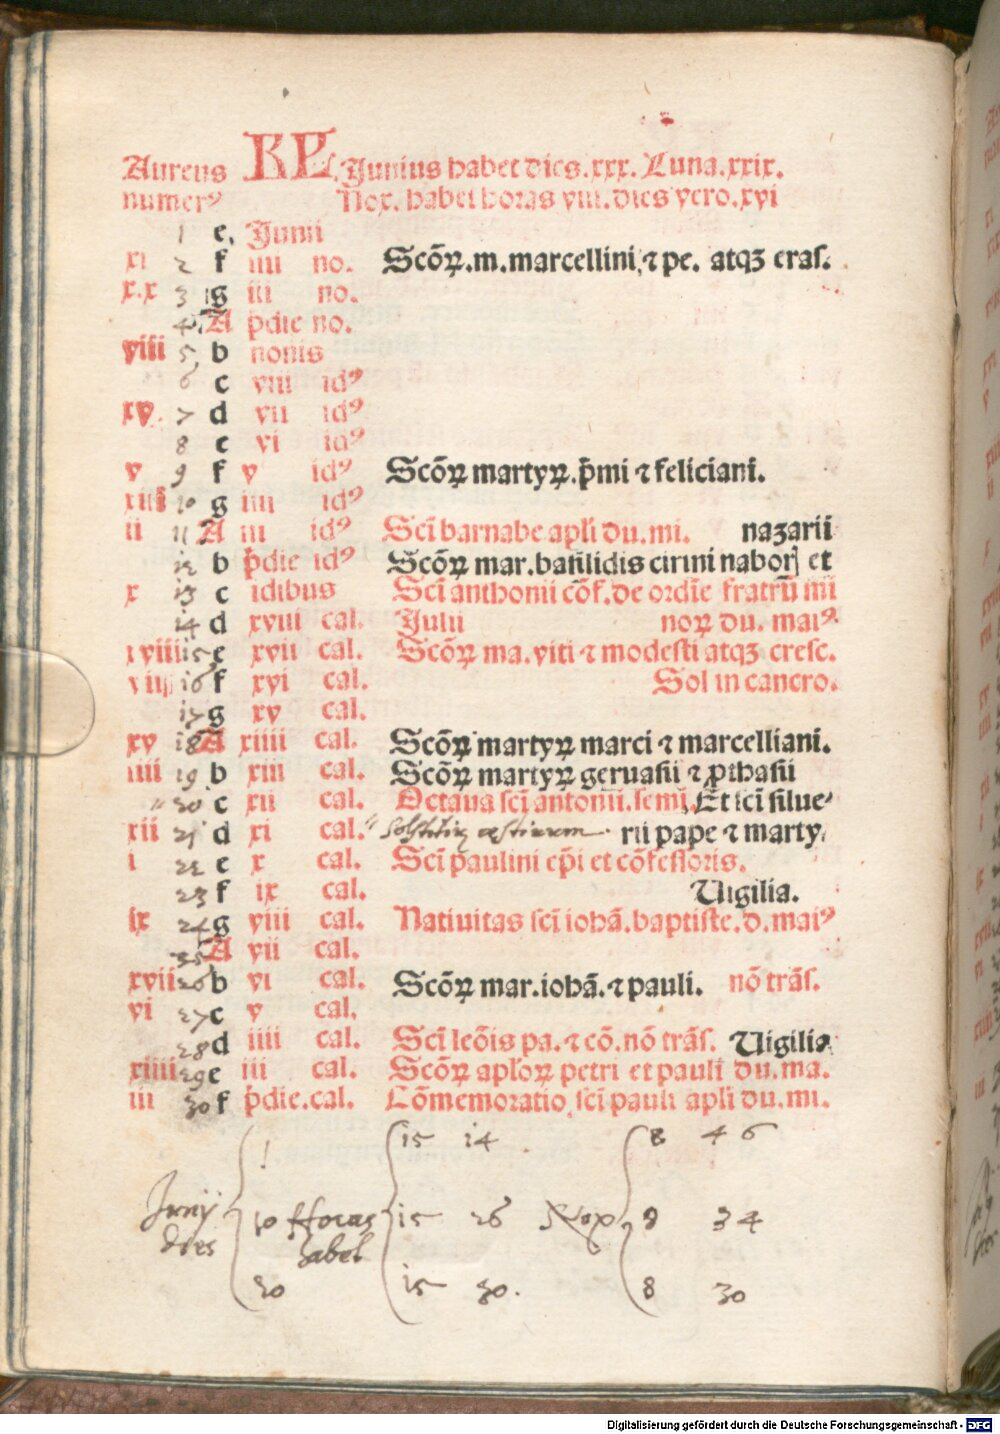 Aureus KL Junius habet dies.xxx. Luna.xxix.
numerꝰ Nox. habet horas viii. dies vero.xvi
1 e. Junii
xi 2 f iiii no. Scōꝝ.m.marcellini,⁊ pe. atqꝫ eras.
x.x 3 g iii no.
4 A p̄die no.
viii 5 b nonis
6 c viii idꝰ
xv. 7 d vii idꝰ
8 e vi idꝰ
v 9 f v idꝰ Scōꝝ martyꝝ.p̄mi ⁊ feliciani.
xiii 10 g iiii idꝰ
ii 11 A iii idꝰ Sci barnabe apli du. mi. nazarii
12 b p̄die idꝰ Scōꝝ mar. basilidis cirini nabor] et
x 13 c idibus Sci anthonii cōf. de ordīe fratrū mi
14 d xviii cal. Julii noꝝ du. maiꝰ.
xviii 15 e xvii cal. Scōꝝ ma. viti ⁊ modesti atqꝫ cresc.
vii 16 f xvi cal. Sol in cancro.
17 g xv cal.
xv 18 A xiiii cal. Scōꝝ martyꝝ marci ⁊ marcelliani.
iiii 19 b xiii cal. Scōꝝ martyꝝ geruasii ⁊ ꝓthasii
20 c xii cal. Octaua sci antonii. semi. Et sci silue
xii 21 d xi cal. Solstitiū æstiuum. rii pape ⁊ marty.
i 22 e x cal. Sci paulini ep̄i et cōfessoris.
23 f ix cal. Uigilia.
ix 24 g viii cal. Natiuitas sci iohā. baptiste. d. maiꝰ
25 A vii cal.
xvii 26 b vi cal. Scōꝝ mar. iohā. ⁊ pauli. nō trās.
vi 27 c v cal.
28 d iiii cal. Sci leōis pa. ⁊ cō. nō trās. Uigilia
xiiii 29 e iii cal. Scōꝝ aploꝝ petri et pauli du. ma.
iii 30 f p̄die. cal. Cōmemoratio sci pauli apli du. mi.
1 15 14 8 46
Junij 10 horas 15 26 Nox 8 34
dies habet
30 15 30. 8 30
Digitalisierung gefördert durch die Deutsche Forschungsgemeinschaft - DFG